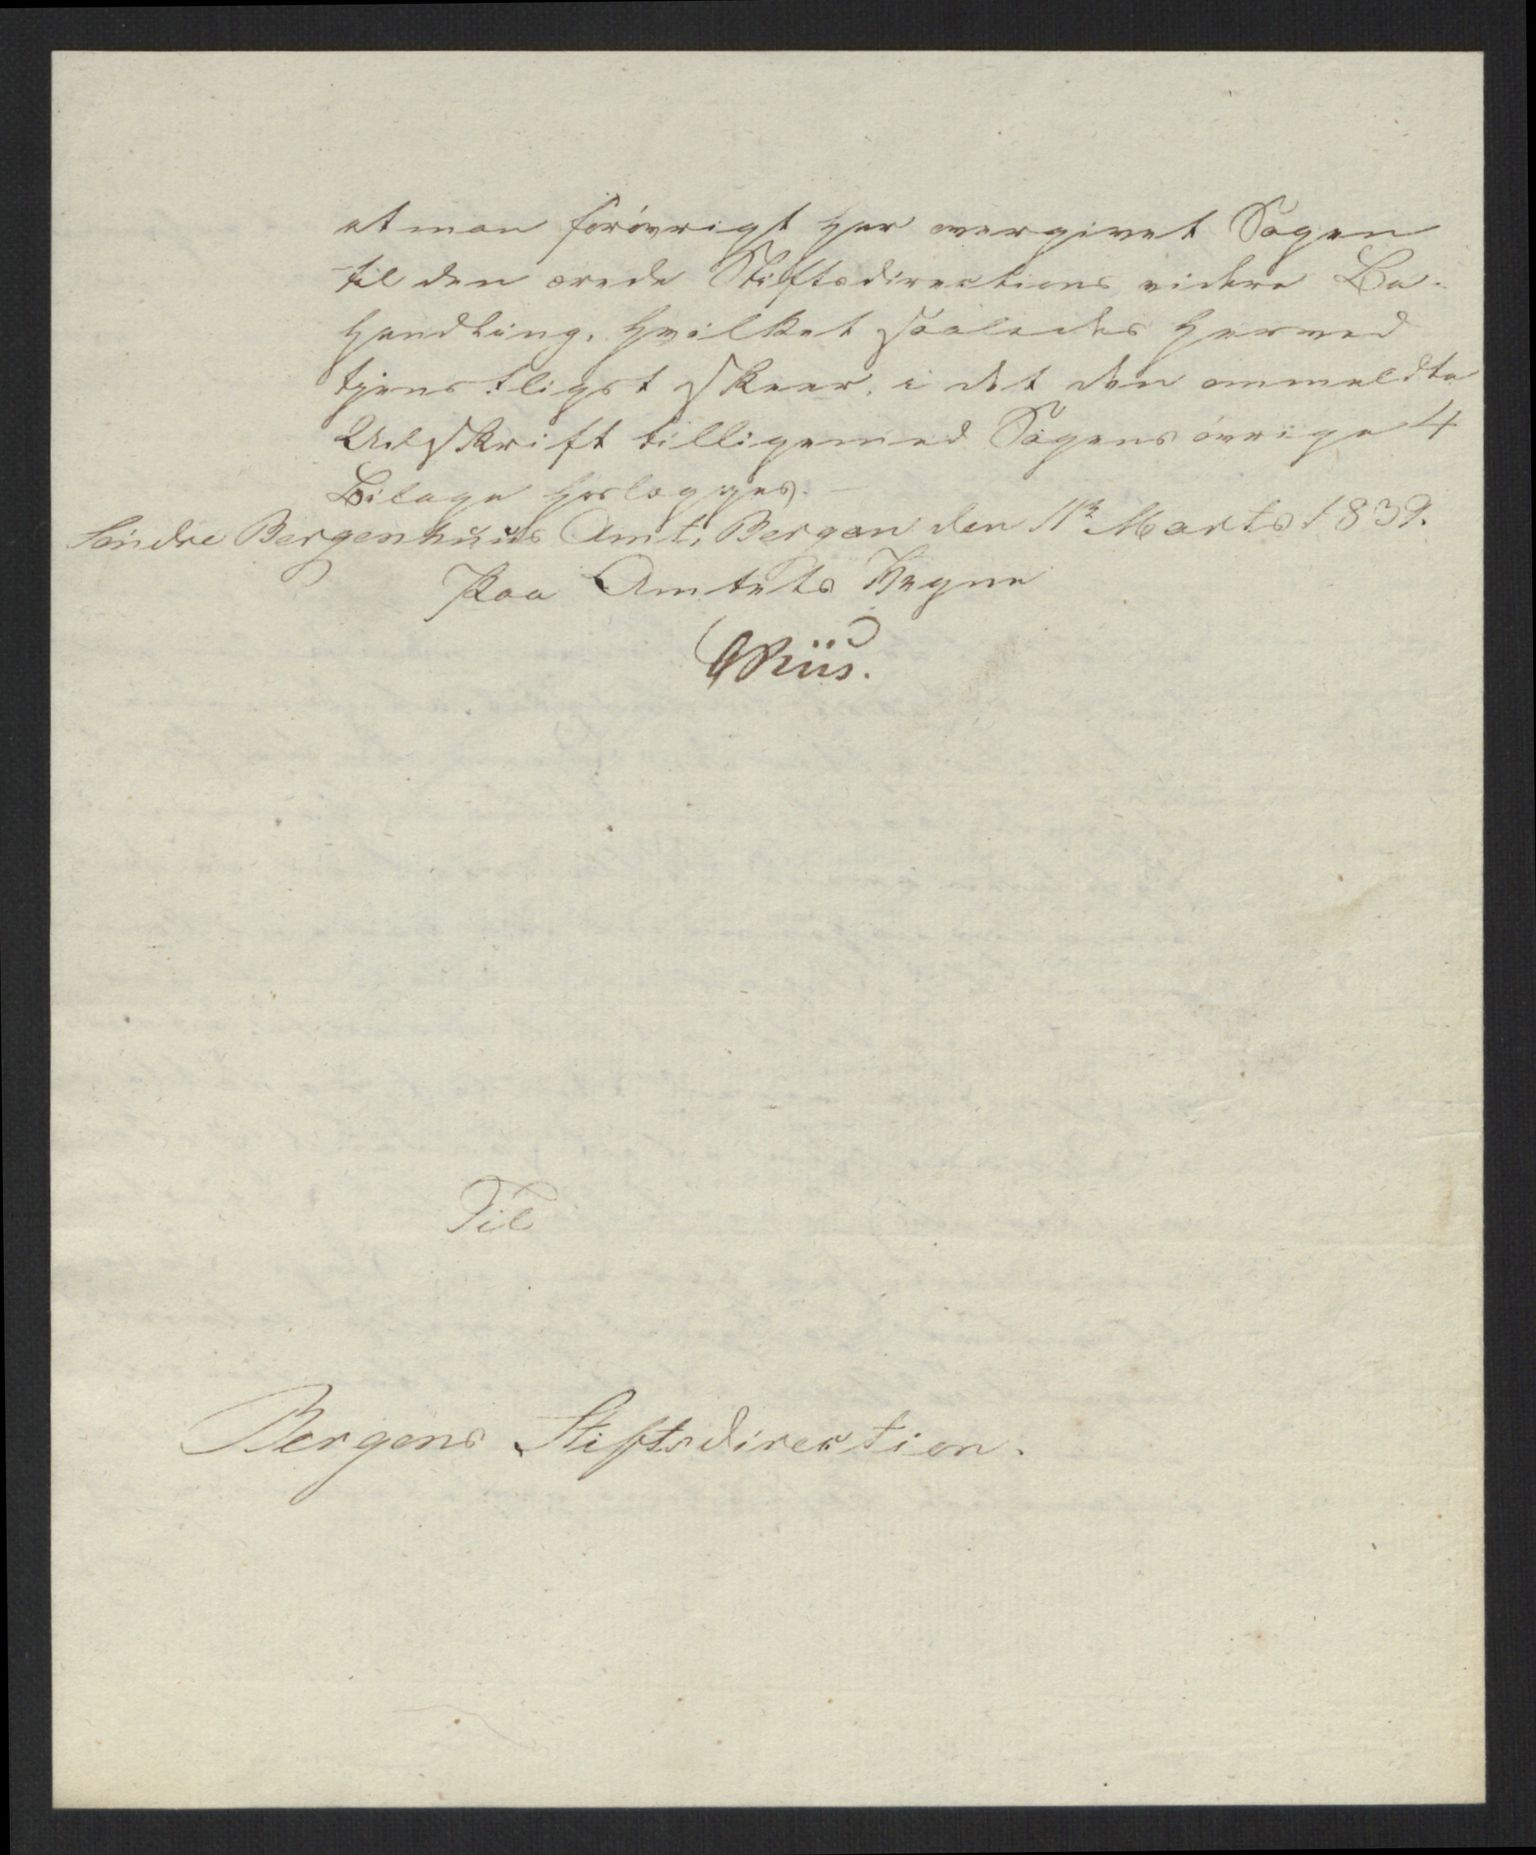 at man forövrigt har overgivet Sagen
til den ærede Stiftsdirections videre Be-
handling. Hvilket saaledes herved
tjenstligst skeer, i det den ommeldte
Udskrift tilligemed Sagens övrige 4
Bilage herlægges. –
Söndre Bergenhuus Amt, Bergen den 11te Marts 1839.
Paa Amtets Vegne
Riis.
Til
Bergens Stiftsdirection.